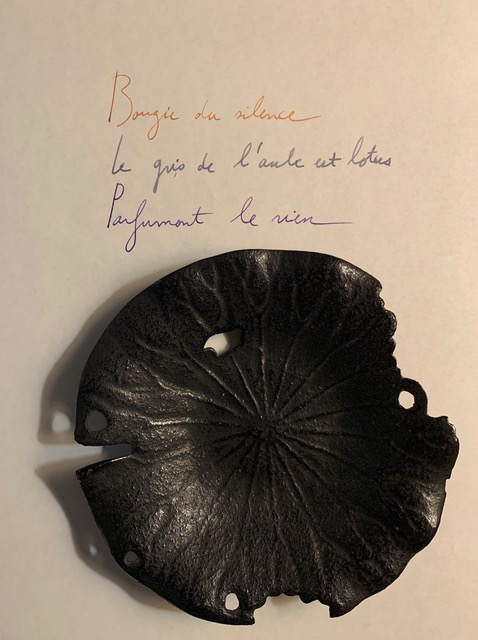 Bougie du silence
Le gris de l'aube est lotus
Parfumant le rien